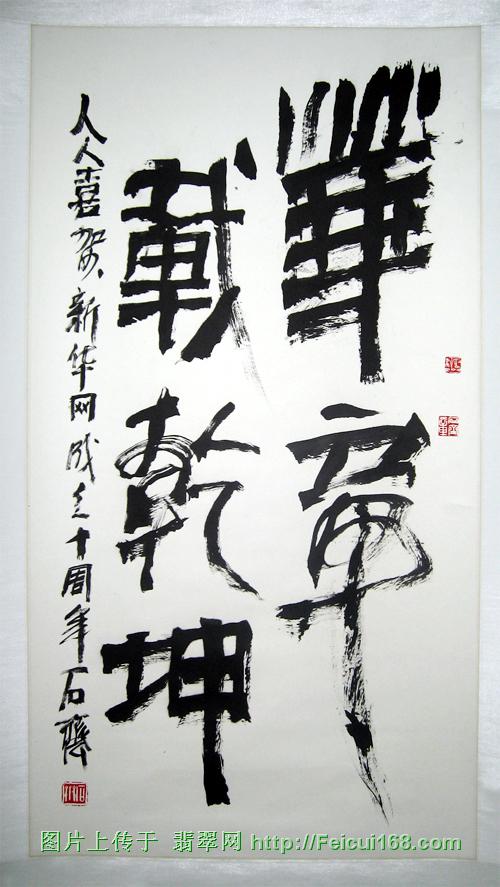 華章
載乾坤
人人嘉贺新华网成立十周年石齊
图片上传于 翡翠网 http://Feicui168.com